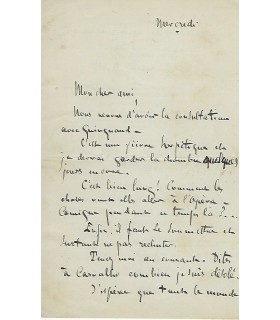 Mercredi
Mon cher ami,
Nous venons d'avoir la consultation
avec Guinguand -
C'est une fièvre herpétique et
je devrai garder la chambre quelques
jours encore.
C'est bien long! Comment les
choses vont-elles aller à l'Opéra-
Comique pendant ce temps là?...
Enfin, il faut se soumettre et
surtout ne pas rechuter.
Tenez moi au courant. Dites
à Carvalho combien je suis désolé.
J'espère que tout le monde